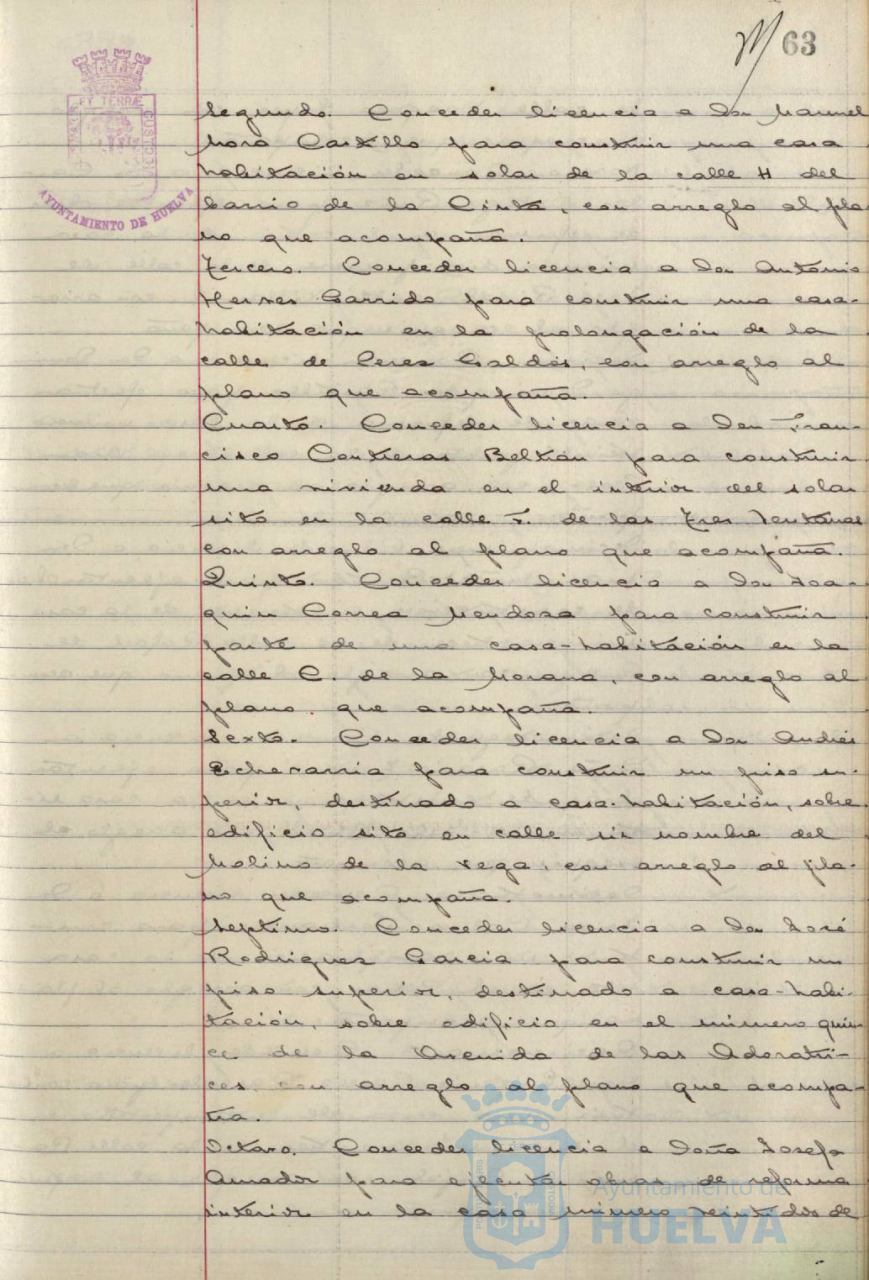 63
PORTUS MARIS ET TERRÆ CUSTODIA
AYUNTAMIENTO DE HUELVA
Segundo. Conceder licencia a don Manuel
Mora Castillo para construir una casa
habitación en solar de la calle H del
barrio de la Cinta, con arreglo al pla
no que acompaña.
Tercero. Conceder licencia a don Antonio
Garrido para construir una casa-
habitación en la prolongación de la
calle de Perez Galdós, con arreglo al
plano que acompaña.
Cuarto. Conceder licencia a don Fran-
cisco Contreras Beltrán para construir
una vivienda en el interior del solar
sito en la calle F. de las Tres Ventanas
con arreglo al plano que acompaña.
Quinto. Conceder licencia a don Joa-
quin Correa Mendoza para construir
parte de una casa-habitación en la
calle C. de la Morana, con arreglo al
plano que acompaña.
Sexto. Conceder licencia a don Andrés
Echevarria para construir un piso su-
perior, destinado a casa-habitación, sobre
edificio sito en calle sin nombre del
Molino de la Vega, con arreglo al pla-
no que acompaña.
Septimo. Conceder licencia a don José
Rodriguez Garcia para construir un
piso superior, destinado a casa-habi-
tación, sobre edificio en el número quin
ce de la Avenida de las Adoratri-
ces, con arreglo al plano que acompa-
ña.
Octavo. Conceder licencia a doña Josefa
Amador para ejecutar obras de reforma
interior en la casa número veintidós de
Ayuntamiento de
HUELVA